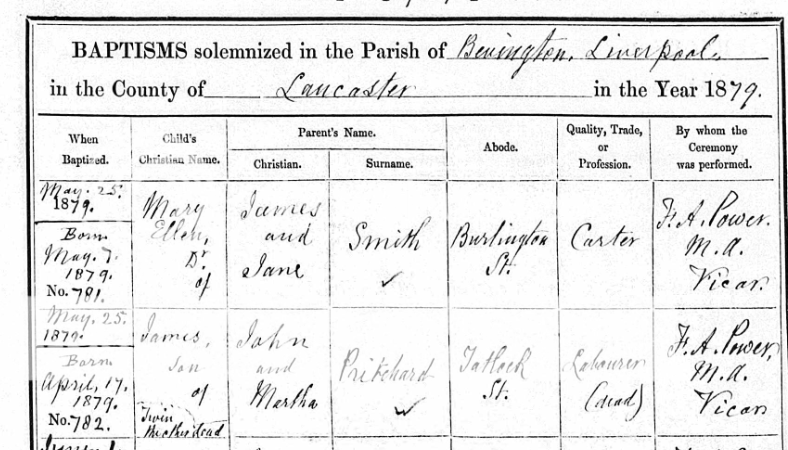 BAPTISMS solemnized in the Parish of Bevington, Liverpool,
in the County of Lancaster in the Year 1879.
When Baptized.
Child's Christian Name.
Parent's Name.
Christian.
Surname.
Abode.
Quality, Trade, or Profession.
By whom the Ceremony was performed.
May. 25.
1879.
Born
May. 7.
1879.
No. 781.
Mary
Ellen,
Dr.
of
James
and
Jane
Smith
Burlington
St.
Carter
F. A. Power.
M.A.
Vicar.
May. 25.
1879.
Born
April, 17.
1879.
No. 782.
James,
Son
of
Twin
John
and
Martha
Pritchard
Tatlock
St.
Labourer
(dead)
F. A. Power.
M.A.
Vicar